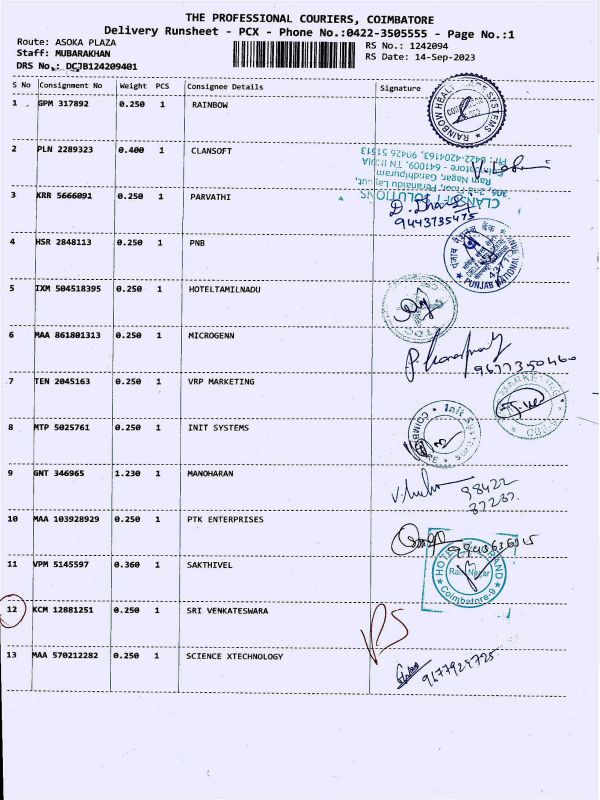 THE PROFESSIONAL COURIERS, COIMBATORE
Delivery Runsheet - PCX - Phone No.:0422-3505555 - Page No.:1
Route: ASOKA PLAZA
Staff: MUBARAKHAN
DRS No.: DCJB124209401
RS No.: 1242094
RS Date: 14-Sep-2023
S No Consignment No Weight PCS Consignee Details Signature
1 GPM 317892 0.250 1 RAINBOW
2 PLN 2289323 0.400 1 CLANSOFT
CLANSOFT SOLUTIONS
Ram Nagar, Gandhipuram
641009. TN. INDIA
Ph: 0422-4204163, 90426 51513
3 KRR 5666091 0.250 1 PARVATHI
9443735475
4 HSR 2848113 0.250 1 PNB
PUNJAB NATIONAL
5 IXM 504518395 0.250 1 HOTELTAMILNADU
6 MAA 861801313 0.250 1 MICROGENN
9677350460
7 TEN 2045163 0.250 1 VRP MARKETING
8 MTP 5025761 0.250 1 INIT SYSTEMS
9 GNT 346965 1.230 1 MANOHARAN
98422
37237.
10 MAA 103928929 0.250 1 PTK ENTERPRISES
11 VPM 5145597 0.360 1 SAKTHIVEL
Ram Nagar
Coimbatore-9
12 KCM 12881251 0.250 1 SRI VENKATESWARA
13 MAA 570212282 0.250 1 SCIENCE XTECHNOLOGY
9177924725